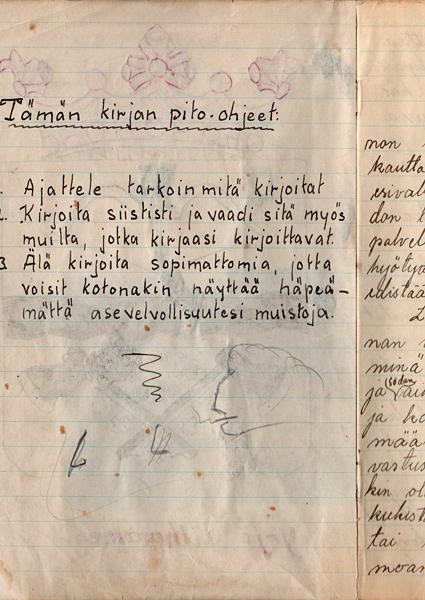 Tämän kirjan pito-ohjeet:
1. Ajattele tarkoin mitä kirjoitat
2. Kirjoita siististi ja vaadi sitä myös
muilta, jotka kirjaasi kirjoittavat.
3. Älä kirjoita sopimattomia, jotta
voisit kotonakin näyttää häpeä-
mättä asevelvollisuutesi muistoja.
non
kautta
esival
don
palvel
hyötyä
edistää
L
nan
minä
ja sodan
ja ka
mää
vastus
kin ol
kukist
tai